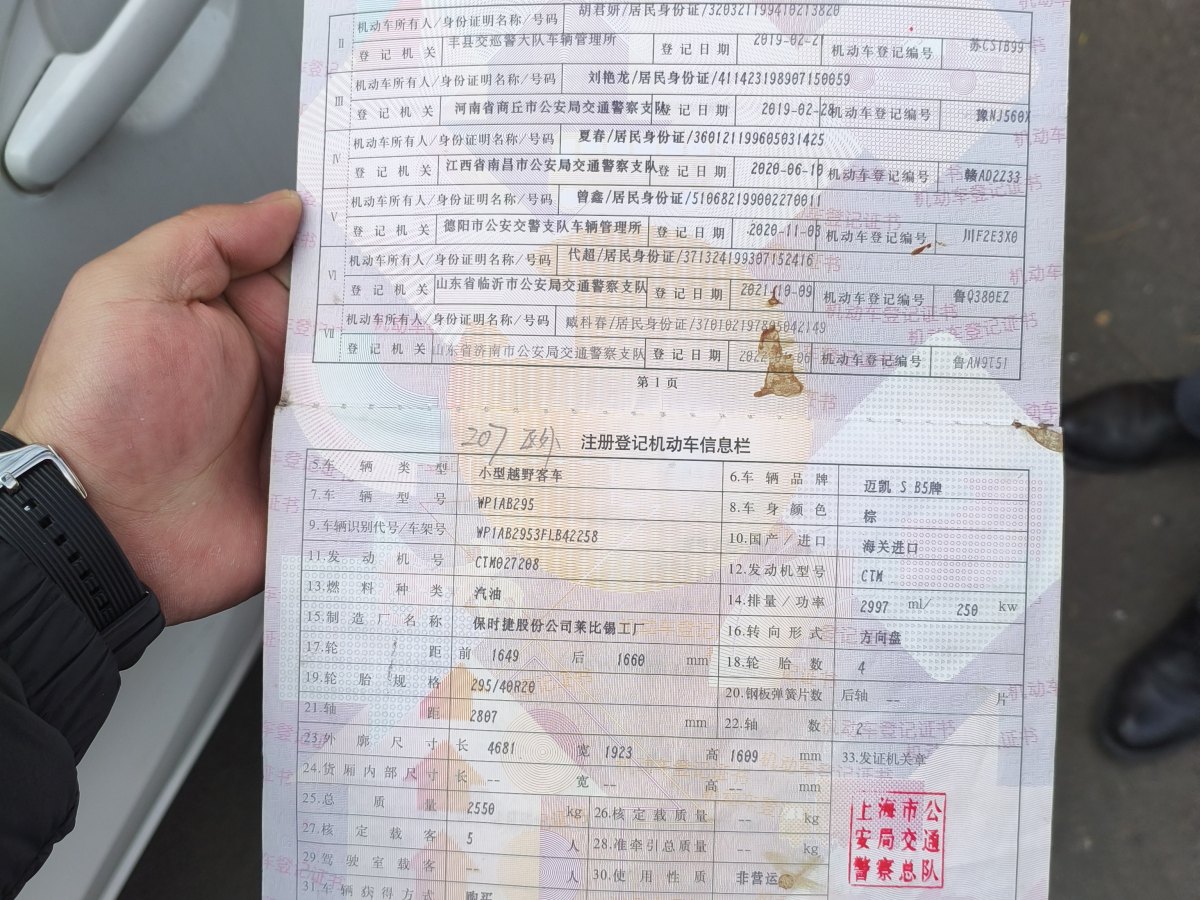 II 机动车所有人/身份证明名称/号码 胡君妍/居民身份证/320321199410213820
登记机关 丰县交巡警大队车辆管理所 登记日期 2019-02-21 机动车登记编号 苏CS1B99
III 机动车所有人/身份证明名称/号码 刘艳龙/居民身份证/411423198907150059
登记机关 河南省商丘市公安局交通警察支队 登记日期 2019-02-28 机动车登记编号 豫NJ560X
IV 机动车所有人/身份证明名称/号码 夏春/居民身份证/360121199605031425
登记机关 江西省南昌市公安局交通警察支队 登记日期 2020-06-10 机动车登记编号 赣AD2Z33
V 机动车所有人/身份证明名称/号码 曾鑫/居民身份证/510682199002270011
登记机关 德阳市公安交警支队车辆管理所 登记日期 2020-11-03 机动车登记编号 川F2E3X0
VI 机动车所有人/身份证明名称/号码 代超/居民身份证/371324199307152416
登记机关 山东省临沂市公安局交通警察支队 登记日期 2021-10-09 机动车登记编号 鲁Q380EZ
VII 机动车所有人/身份证明名称/号码 臧科春/居民身份证/
登记机关 山东省济南市公安局交通警察支队 登记日期 机动车登记编号 鲁AN9T51
第1页
207
注册登记机动车信息栏
5.车辆类型 小型越野客车 6.车辆品牌 迈凯 S B5牌
7.车辆型号 WP1AB295 8.车身颜色 棕
9.车辆识别代号/车架号 WP1AB2953FLB42258 10.国产/进口 海关进口
11.发动机号 CTM027208 12.发动机型号 CTM
13.燃料种类 汽油 14.排量/功率 2997 ml/ 250 kw
15.制造厂名称 保时捷股份公司莱比锡工厂 16.转向形式 方向盘
17.轮距 前 1649 后 1660 mm 18.轮胎数 4
19.轮胎规格 295/40R20 20.钢板弹簧片数 后轴 -- 片
21.轴距 2807 mm 22.轴数 2
23.外廓尺寸 长 4681 宽 1923 高 1609 mm 33.发证机关章
24.货厢内部尺寸 长 -- 宽 -- 高 -- mm
25.总质量 2550 kg 26.核定载质量 -- kg
27.核定载客 5 人 28.准牵引总质量 -- kg
29.驾驶室载客 -- 人 30.使用性质 非营运
31.车辆获得方式 购买
上海市公
安局交通
警察总队